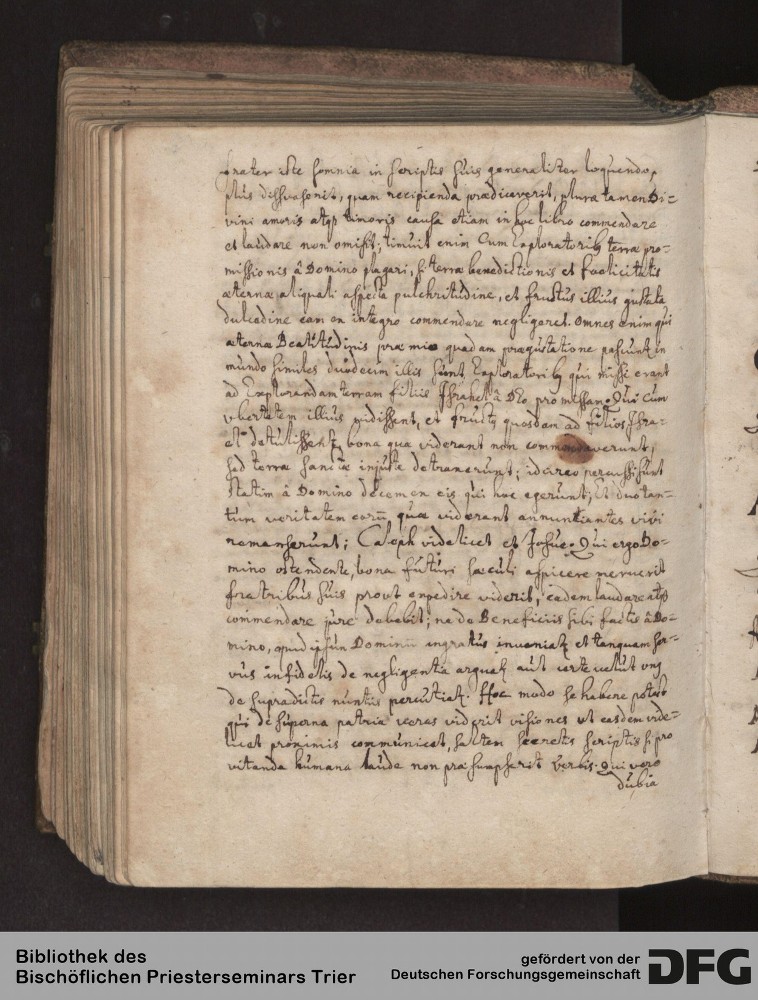 frater iste somnia in scriptis suis generaliter loquendo,
plus dissuaserit, quam recipienda praedicaverit, plura tamen Di=
vini amoris atq; timoris causa etiam in hoc libro commendare
et laudare non omisit; timuit enim Cum Exploratorib9 terrae pro=
missionis â Domino plagari, si terrae benedictionis et foelicitatis
aeternae aliquali aspecta pulchritudine, et fructus illius gustata
dulcedine eam ex integro commendare negligeret. Omnes enim qui
aeternae Beatitudinis praemia quadam praegustatione pascunt in
mundo similes duodecim illis sunt Exploratorib9 qui missi erant
ad Explorandam terram filiis Israhel â DEo promissam. Qui Cum
vbertatem illius vidissent, et fruct9 quosdam ad filios Isra=
el detulissent, bona quae viderant non commendaverunt,
sed terrae sanctae injuste detraxerunt; idcirco percussi sunt
statim â Domino decem ex eis qui hoc egerunt; Et duo tan=
tum veritatem eorū quae viderant annuntiantes vivi
remanserunt; Caleph videlicet et Josue. Qui ergo Do=
mino ostendente, bona futuri saeculi aspicere meruerit
fratribus suis prout expedire viderit, eadem laudare atq;
commendare jure debebit; ne de Beneficiis sibi factis â Do=
mino, quid ipsum Dominū ingratus inveniat et tanquam ser=
vus infidelis de negligentia arguat aut certe velut un9
de supradictis nuntiis percutiat. Hoc modo se habere potest
qui de superna patria veras viderit visiones ut easdem vide=
licet proximis communicet, saltem secretis scriptis si pro
vitanda humana laude non praesumpserit verbis. Qui vero
dubia
Bibliothek des
Bischöflichen Priesterseminars Trier
gefördert von der
Deutschen Forschungsgemeinschaft
DFG